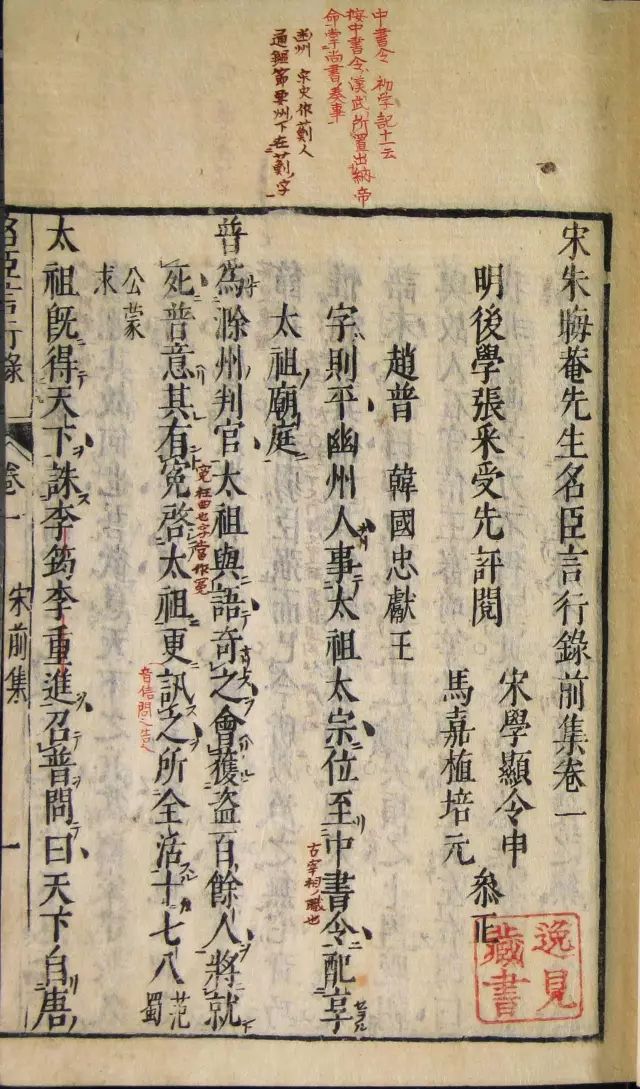 中書令 初学記十一云
按中書令漢武所置出納帝
命掌尚書奏事
幽州 宋史作薊人
通鑑節要州下在薊字
宋朱晦菴先生名臣言行錄前集卷一
明後學張采受先評閱
宋學顯令申
馬嘉植培元
叅正
趙普 韓國忠獻王
字則平幽州人事太祖太宗位至中書令配享
古宰相職也
太祖廟庭
普為滁州判官太祖與語奇之會獲盜百餘人將就
死普意其有冤啓太祖更訊之所全活十七八 范蜀
冤枉曲也字當作冤
音信問也告也
公蒙
求
太祖旣得天下誅李筠李重進召普問曰天下自唐
名臣言行錄 卷一 宋前集 一
逸見
藏書